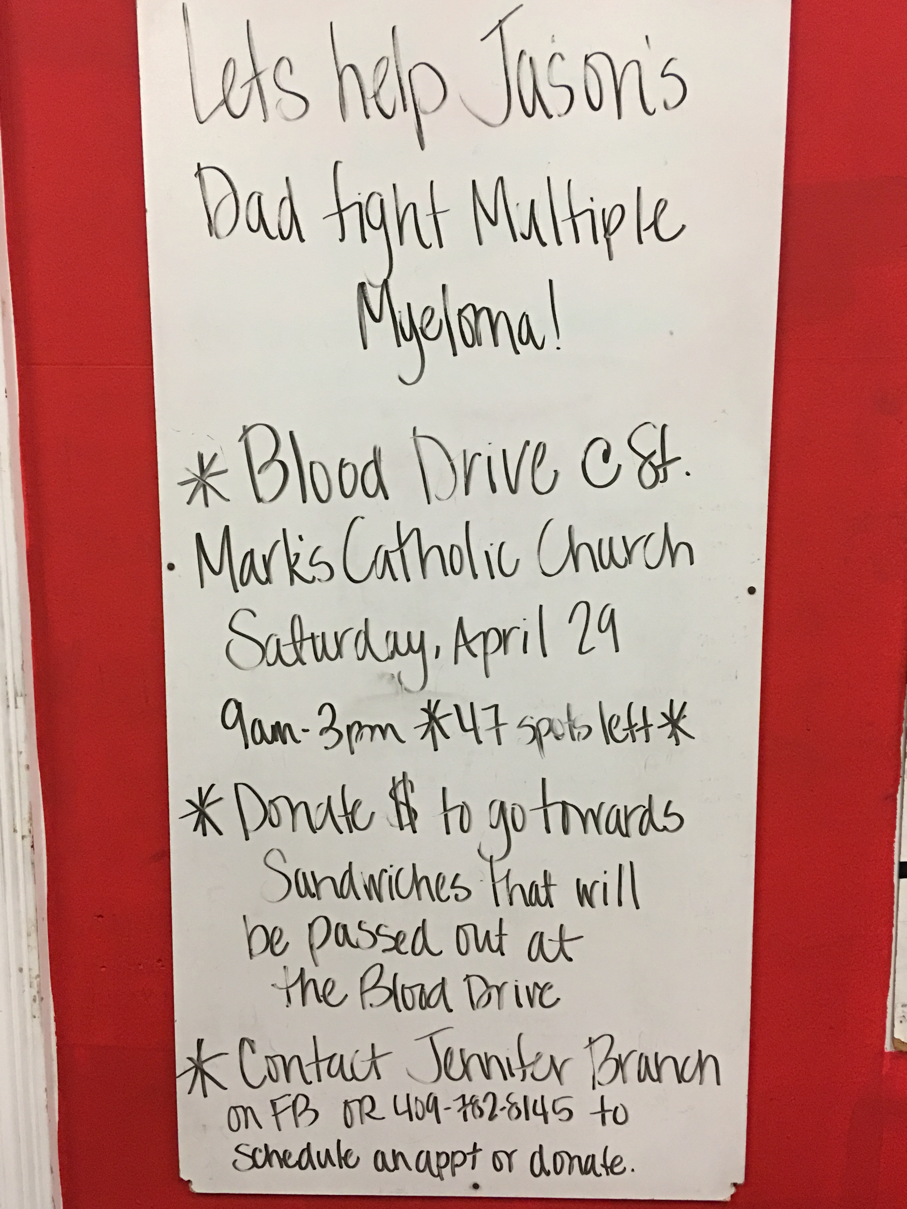 Lets help Jason's
Dad fight Multiple
Myeloma!
* Blood Drive @ St.
Mark's Catholic Church
Saturday, April 29
9am-3pm *47 spots left*
* Donate $ to go towards
Sandwiches that will
be passed out at
the Blood Drive
* Contact Jennifer Branch
on FB OR 409-782-8145 to
schedule an appt or donate.